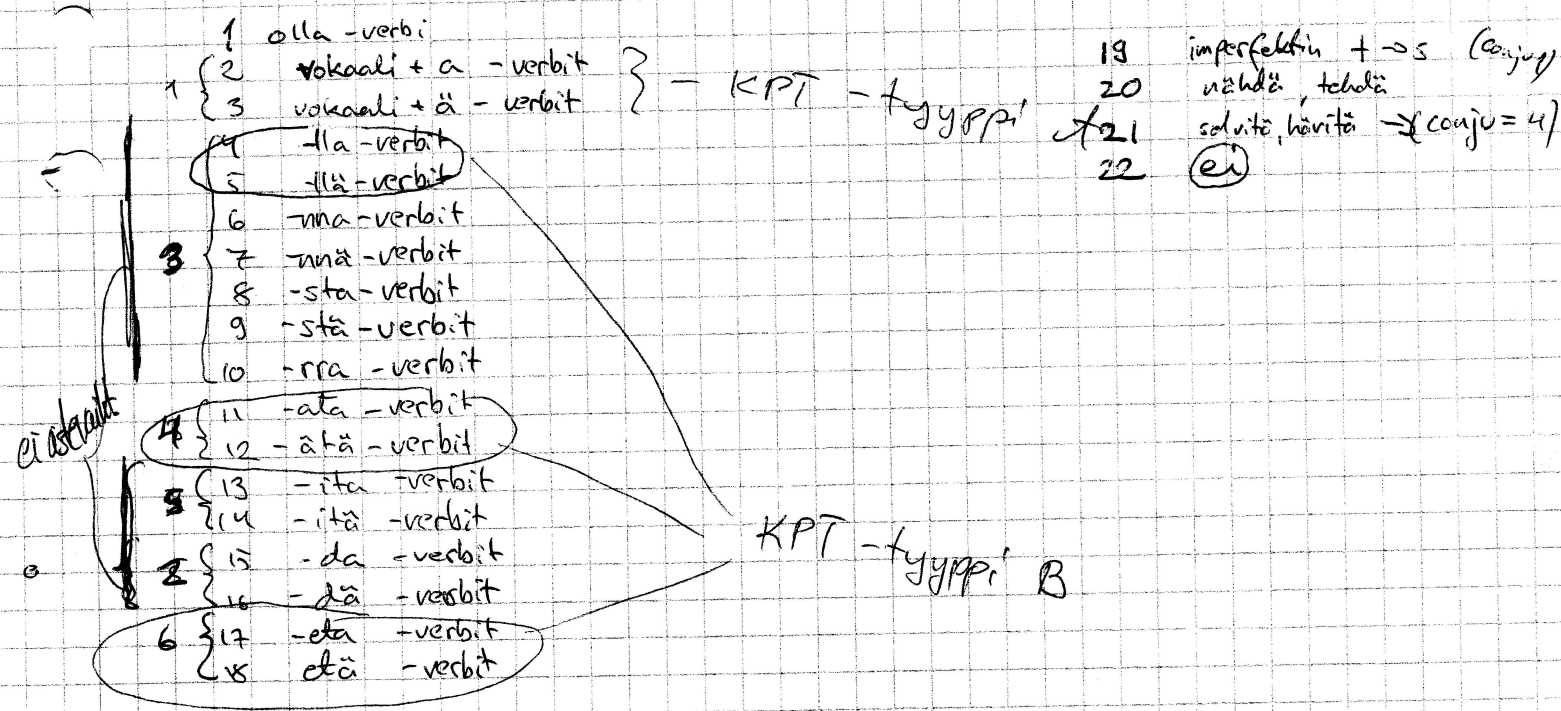 1 olla -verbi
1 { 2 vokaali + a -verbit } - KPT - tyyppi
3 vokaali + ä - verbit
4 -lla -verbit
5 -llä -verbit
6 -nna -verbit
3 { 7 -nnä -verbit
8 -sta -verbit
9 -stä -verbit
10 -rra -verbit
4 { 11 -ata -verbit
12 -ätä -verbit
5 { 13 -ita -verbit
14 -itä -verbit
2 { 15 -da -verbit
16 -dä -verbit
6 { 17 -eta -verbit
18 etä -verbit
KPT -tyyppi B
19 imperfektin t → s
20 nähdä, tehdä
21 selvitä, hävitä → (conju = 4)
22 ei